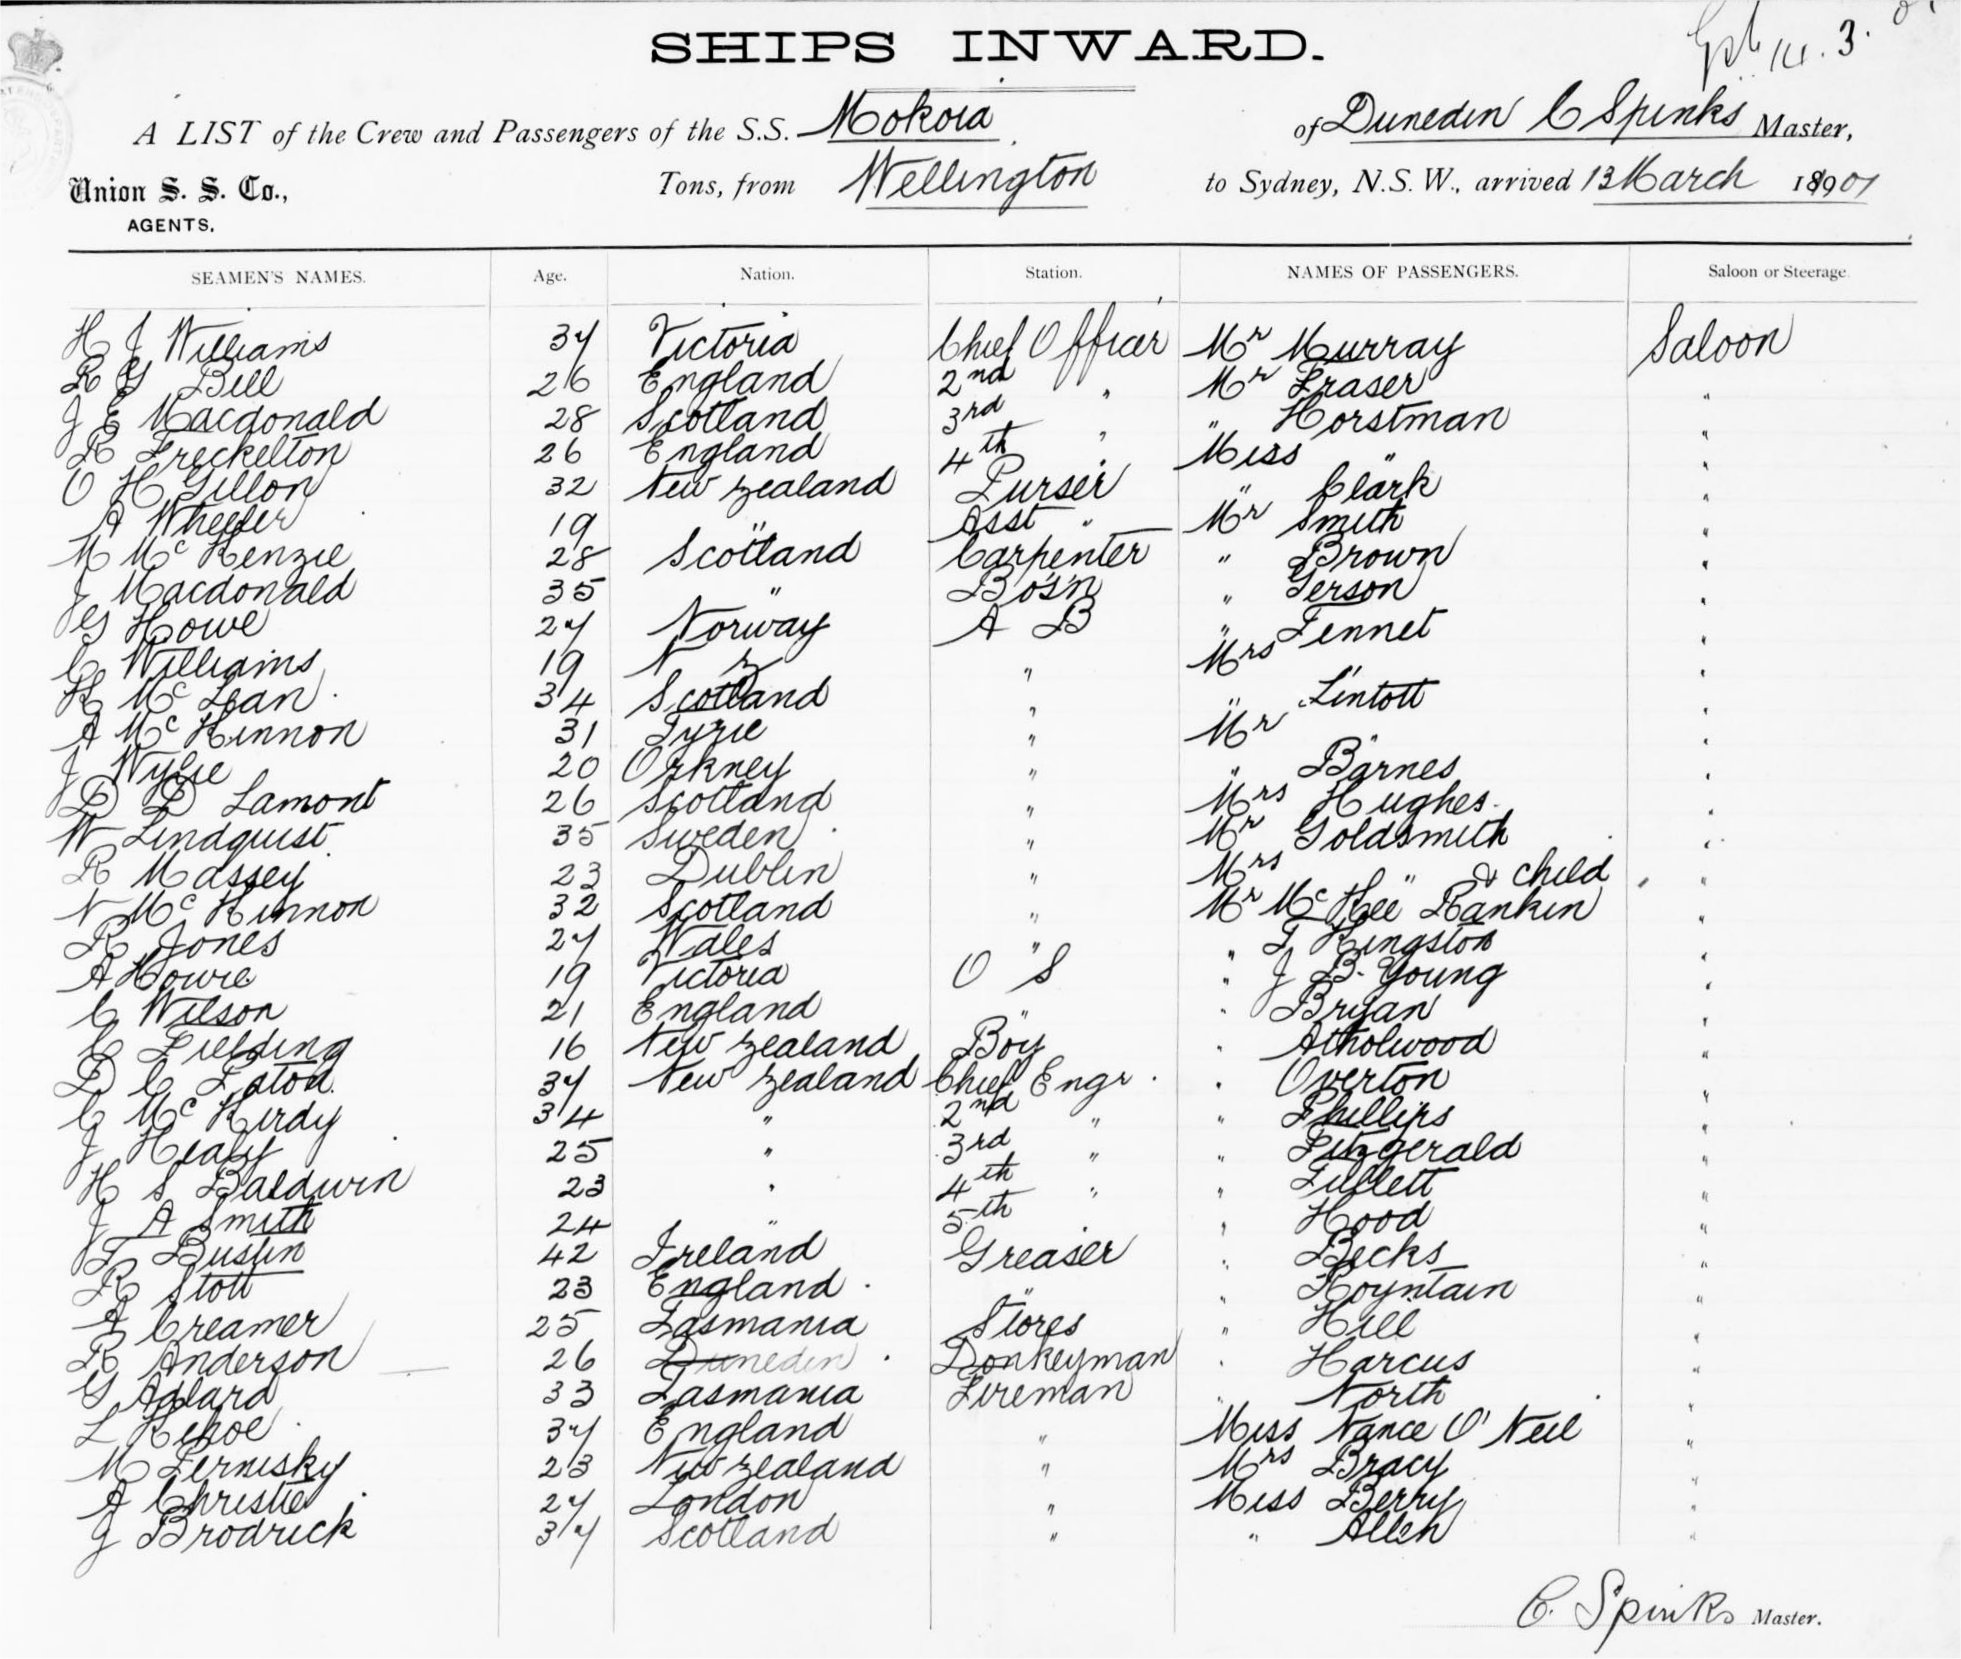 14.3.
SHIPS INWARD.
A LIST of the Crew and Passengers of the S.S. Mokoia of Dunedin C Spinks Master,
Union S. S. Co., Tons, from Wellington to Sydney, N.S.W., arrived 13 March 18901
AGENTS.
SEAMEN'S NAMES. Age. Nation. Station. NAMES OF PASSENGERS. Saloon or Steerage.
H J Williams 37 Victoria Chief Officer Mr Murray Saloon
R G Bell 26 England 2nd " Mr Fraser "
J E Macdonald 28 Scotland 3rd " " Horstman "
R Freckelton 26 England 4th " Miss " "
O H Gillon 32 New Zealand Purser " Clark "
A Wheeler 19 " Asst " Mr Smith "
M McKenzie 28 Scotland Carpenter " Brown "
J Macdonald 35 " Bos'n " Gerson "
G Howe 27 Norway A B " Tennet "
C Williams 19 N Z " Mrs "
H McLean 34 Scotland " " Lintott "
A McKinnon 31 Tyrie " Mr " "
J Wylie 20 Orkney " " Barnes "
D D Lamont 26 Scotland " Mrs Hughes "
W Lindquist 35 Sweden " Mr Goldsmith "
R Massey 23 Dublin " Mrs " & child "
N McKinnon 32 Scotland " Mr McKee Rankin "
R Jones 27 Wales " " T Kingston "
A Howie 19 Victoria O S " J B. Young "
C Wilson 21 England " " Bryan "
C Fielding 16 New Zealand Boy " Atholwood "
D C Eston 37 New Zealand Chief Engr. " Overton "
C McKirdy 34 " 2nd " " Phillips "
J Healy 25 " 3rd " " Fitzgerald "
H S Baldwin 23 " 4th " " Tullett "
J A Smith 24 " 5th " " Hood "
T Bustin 42 Ireland Greaser " Becks "
R Stott 23 England " " Royntain "
A Creamer 25 Tasmania Stores " Hill "
R Anderson 26 Dunedin Donkeyman " Harcus "
G Adlard 33 Tasmania Fireman " North "
L Kehoe 37 England " Miss Nance O'Neil "
M Fernisky 23 New Zealand " Mrs Bracy "
A Christie 27 London " Miss Berry "
J Brodrick 37 Scotland " " Allen "
C. Spinks Master.